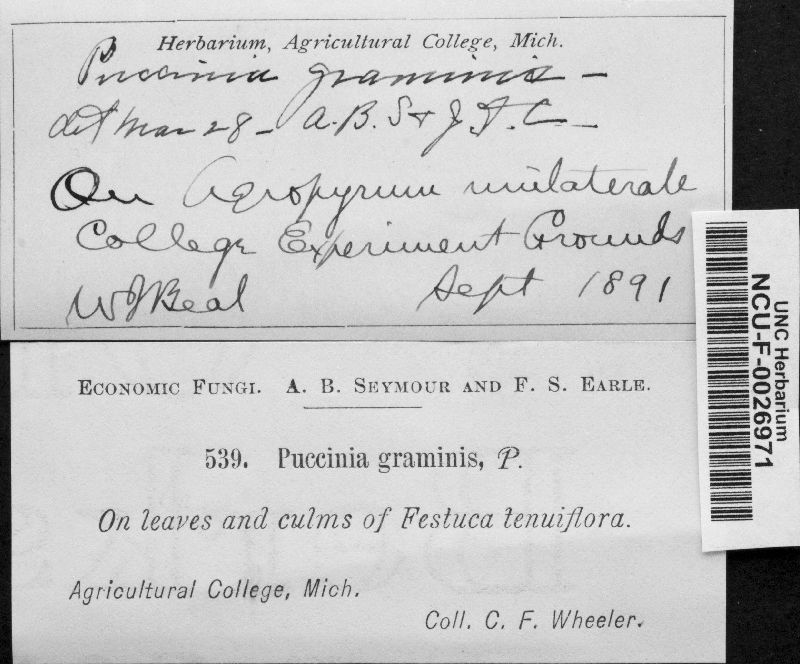 Herbarium, Agricultural College, Mich.
Puccinia graminis —
det Mar 28 - A. B. S & J. F. C —
On Agropyrum unilaterale
College Experiment Grounds
W J Beal Sept 1891
ECONOMIC FUNGI. A. B. SEYMOUR AND F. S. EARLE.
539. Puccinia graminis, P.
On leaves and culms of Festuca tenuiflora.
Agricultural College, Mich.
Coll. C. F. Wheeler.
UNC Herbarium
NCU-F-0026971